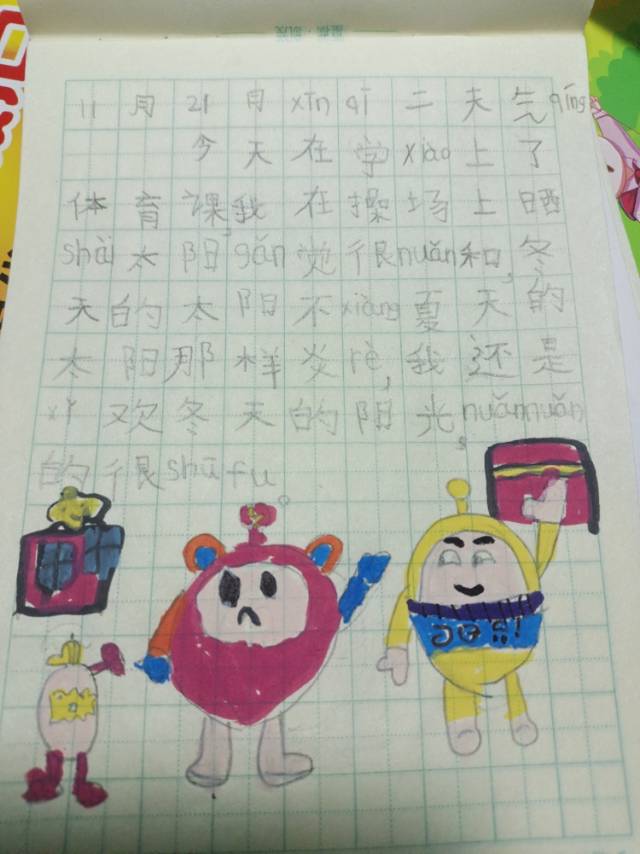 11月21月xīn qī二天气qíng
今天在学xiào上了
体育课,我在操场上晒
shài太阳,gǎn觉很nuǎn和,冬
天的太阳不xiàng夏天的
太阳那样炎rè,我还是
xǐ欢冬天的阳光,nuǎnnuǎn
的很shūfu。